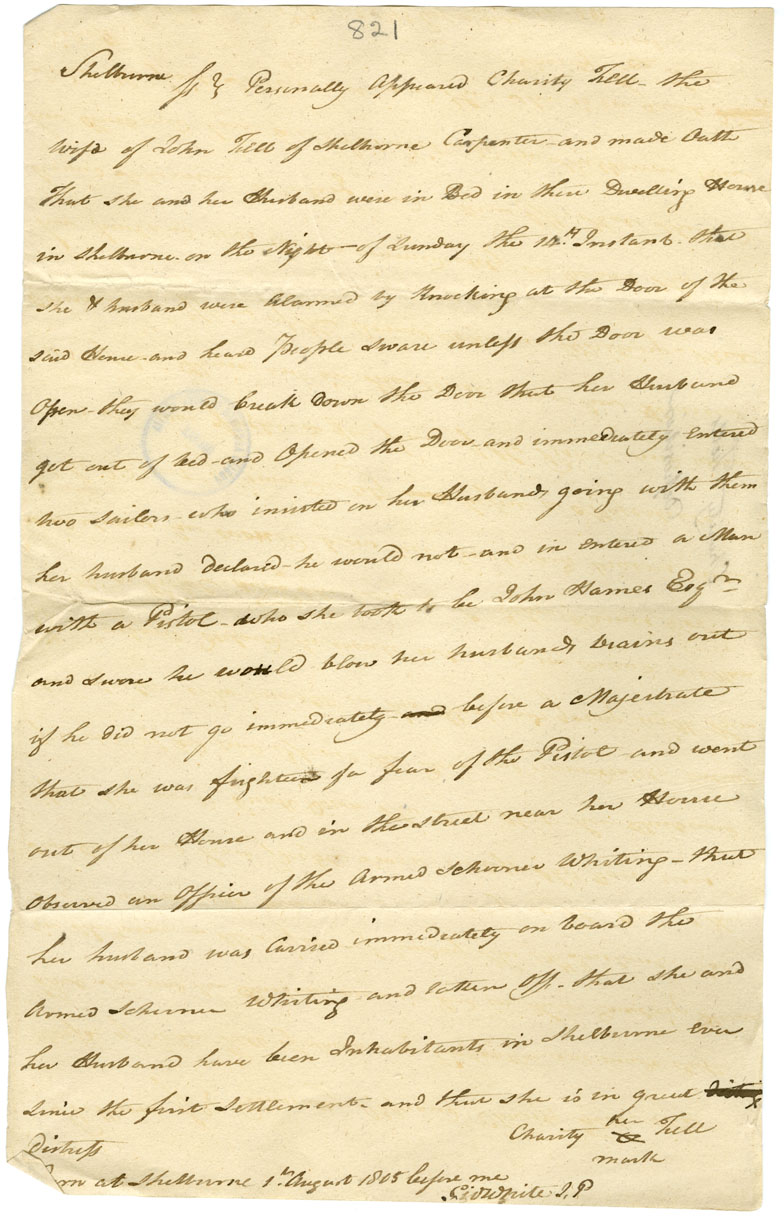 821
Shelburne Ss} Personally Appeared Charity Tell - the
Wife of John Tell of Shelburne Carpenter - and made Oath
That she and her Husband were in Bed in there Dwelling House
in Shelburne - on the Night - of Sunday the 14th Instant - that
she & husband were Alarmed by Knocking at the Door of the
said House - and heard People sware unless the Door was
Open - they would break Down the Door that her Husband
got out of bed - and Opened the Door - and immediately entered
two Sailors - who insisted on her Husbands going with them
her husband Declared - he would not - and in entered a Man
with a Pistol - who she took to be John Hames Esqr
and swore he would blow her husbands brains out
if he did not go immediately - and before a Majestrate
that she was frighted for fear of the Pistol - and went
out of her House and in the street near her House
Observed an Officer of the Armed Schooner Whiting - that
her husband was Carried immediately on board the
Armed Schooner Whiting - and taken Off - that she and
her Husband have been Inhabitants in Shelburne ever
since the first Settlement - and that she is in great
distress
Charity her Tell
mark
at Shelburne 1st August 1805 before me
White J.P